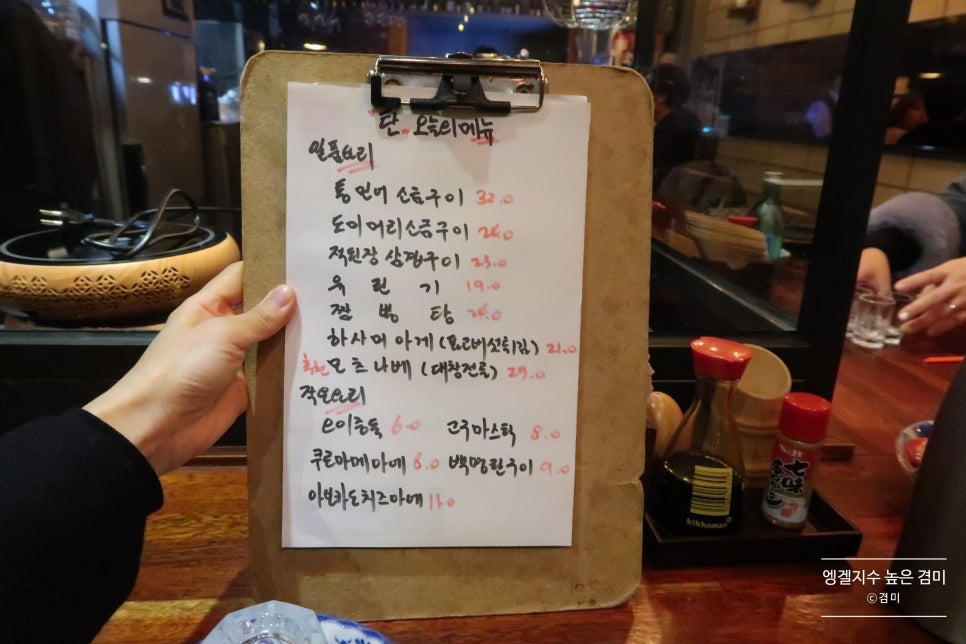 탄 오늘의메뉴
일품요리
통 연어 소금구이 32.0
도미머리소금구이 24.0
적된장 삼겹구이 23.0
유 린 기 19.0
짬 뽕 탕 24.0
하사미 아게 (표고버섯튀김) 21.0
추천 모츠나베 (대창전골) 29.0
작은요리
에이중독 6.0 고구마스틱 8.0
쿠로마메마메 8.0 백명란구이 9.0
아보카도치즈마메 11.0
kikkoman
七味
엥겔지수 높은 겸미
©겸미